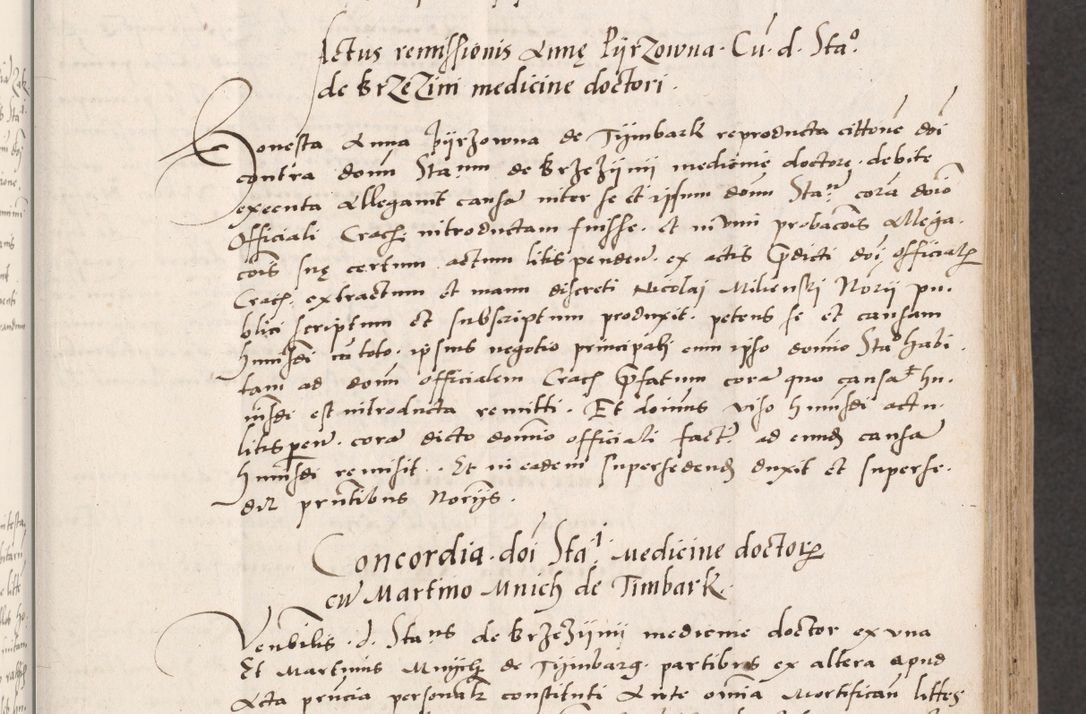 Actus remissionis Annę Pyrzowna. Cū. d. Staº
de BrzeZini medicine doctori.
Honesta Anna Pyrzowna de Tymbark reproducta cittone doi
contra donū Staum de Brzezijnij medicinę doctorē. debite
executa Allegavit causā inter se et ipsum donū Staū corā doīo
Officiali Craceñ introductam fuisse. et in vim probacōis Allega.
cōis suę certum actum litis penden. ex actis p̄dicti doī officialis
Crac̄. extractum et manu discreti Nicolaj Milienski Norij pu.
blici scriptum et subscriptum produxit. petens se et causam
hmōi cū toto. ipsius negotio principali cum ipso domino Staº habi.
tam ad donū officialem Crac̄ p̄fatum corā quo causa hu.
iusōi est introducta remitti. Et doīnus viso huiusōi actu.
litis pen. corā dicto domīo officiali fact. ad eund causā
huiusōi remisit. Et in eadem supersedend duxit et superse.
dit pn̄tibus Norijs.
Concordia. doi Staⁱ. Medicine doctoris
cū Martino Mnich de Timbark.
Venbilis. d. Staus de Brzezijnij medicine doctor ex vna
Et Martinus Mnych de Tymbarg. partibus ex altera apud
Acta pn̄cia personalr constituti Ante omīa Mortifican littes